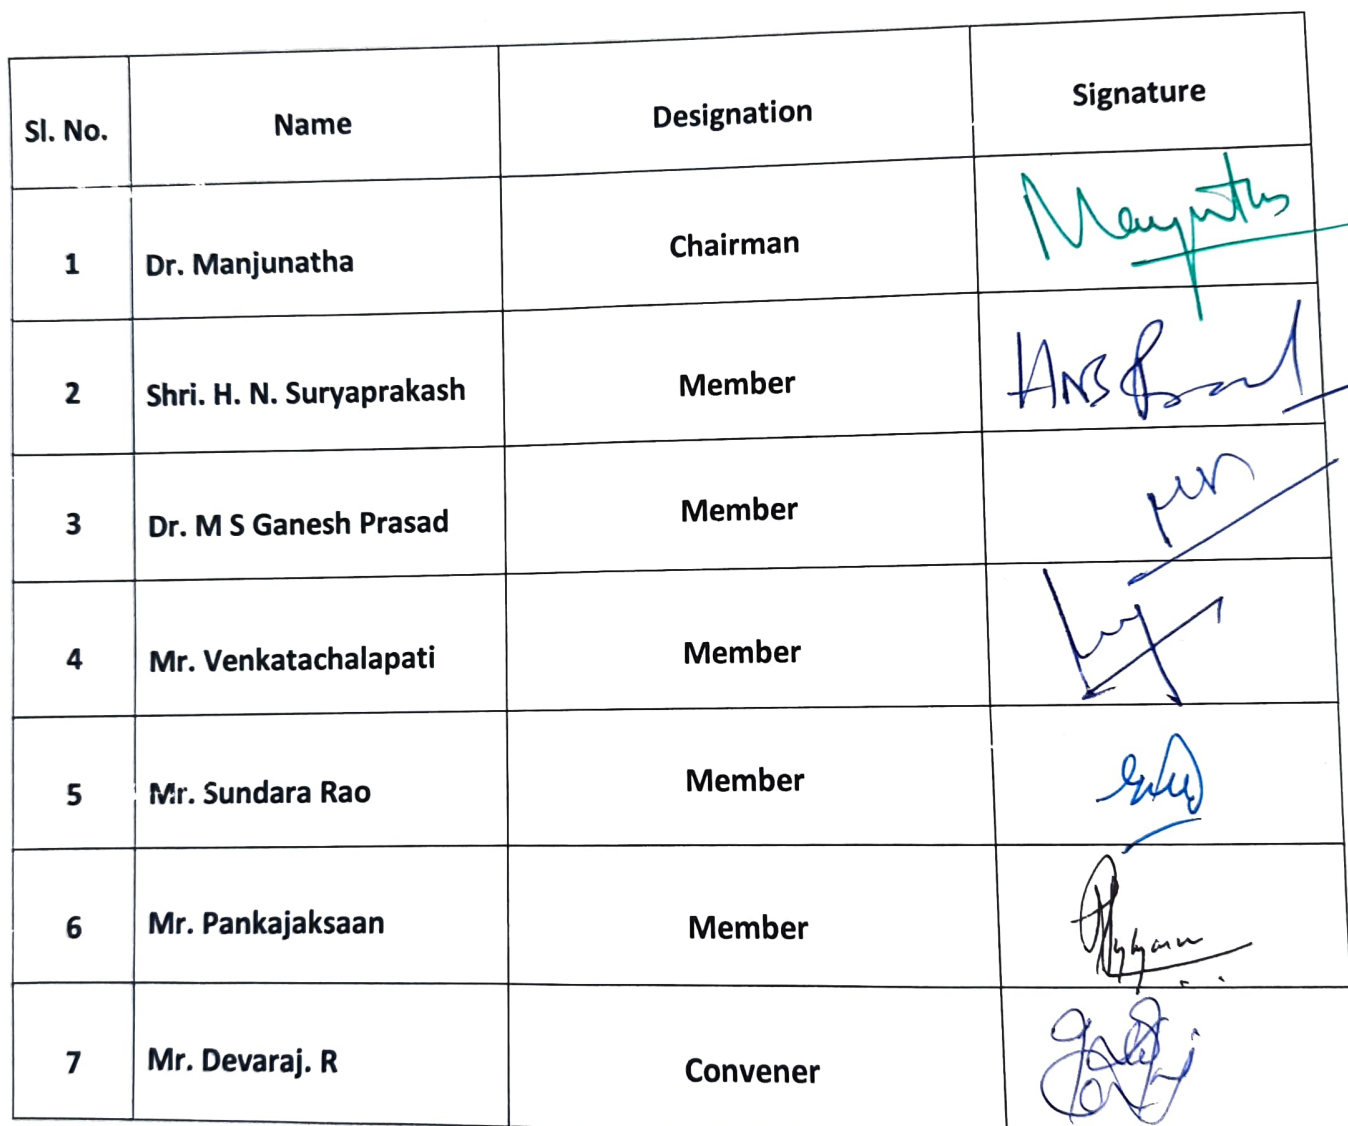 Sl. No. Name Designation Signature
1 Dr. Manjunatha Chairman
2 Shri. H. N. Suryaprakash Member
3 Dr. M S Ganesh Prasad Member
4 Mr. Venkatachalapati Member
5 Mr. Sundara Rao Member
6 Mr. Pankajaksaan Member
7 Mr. Devaraj. R Convener